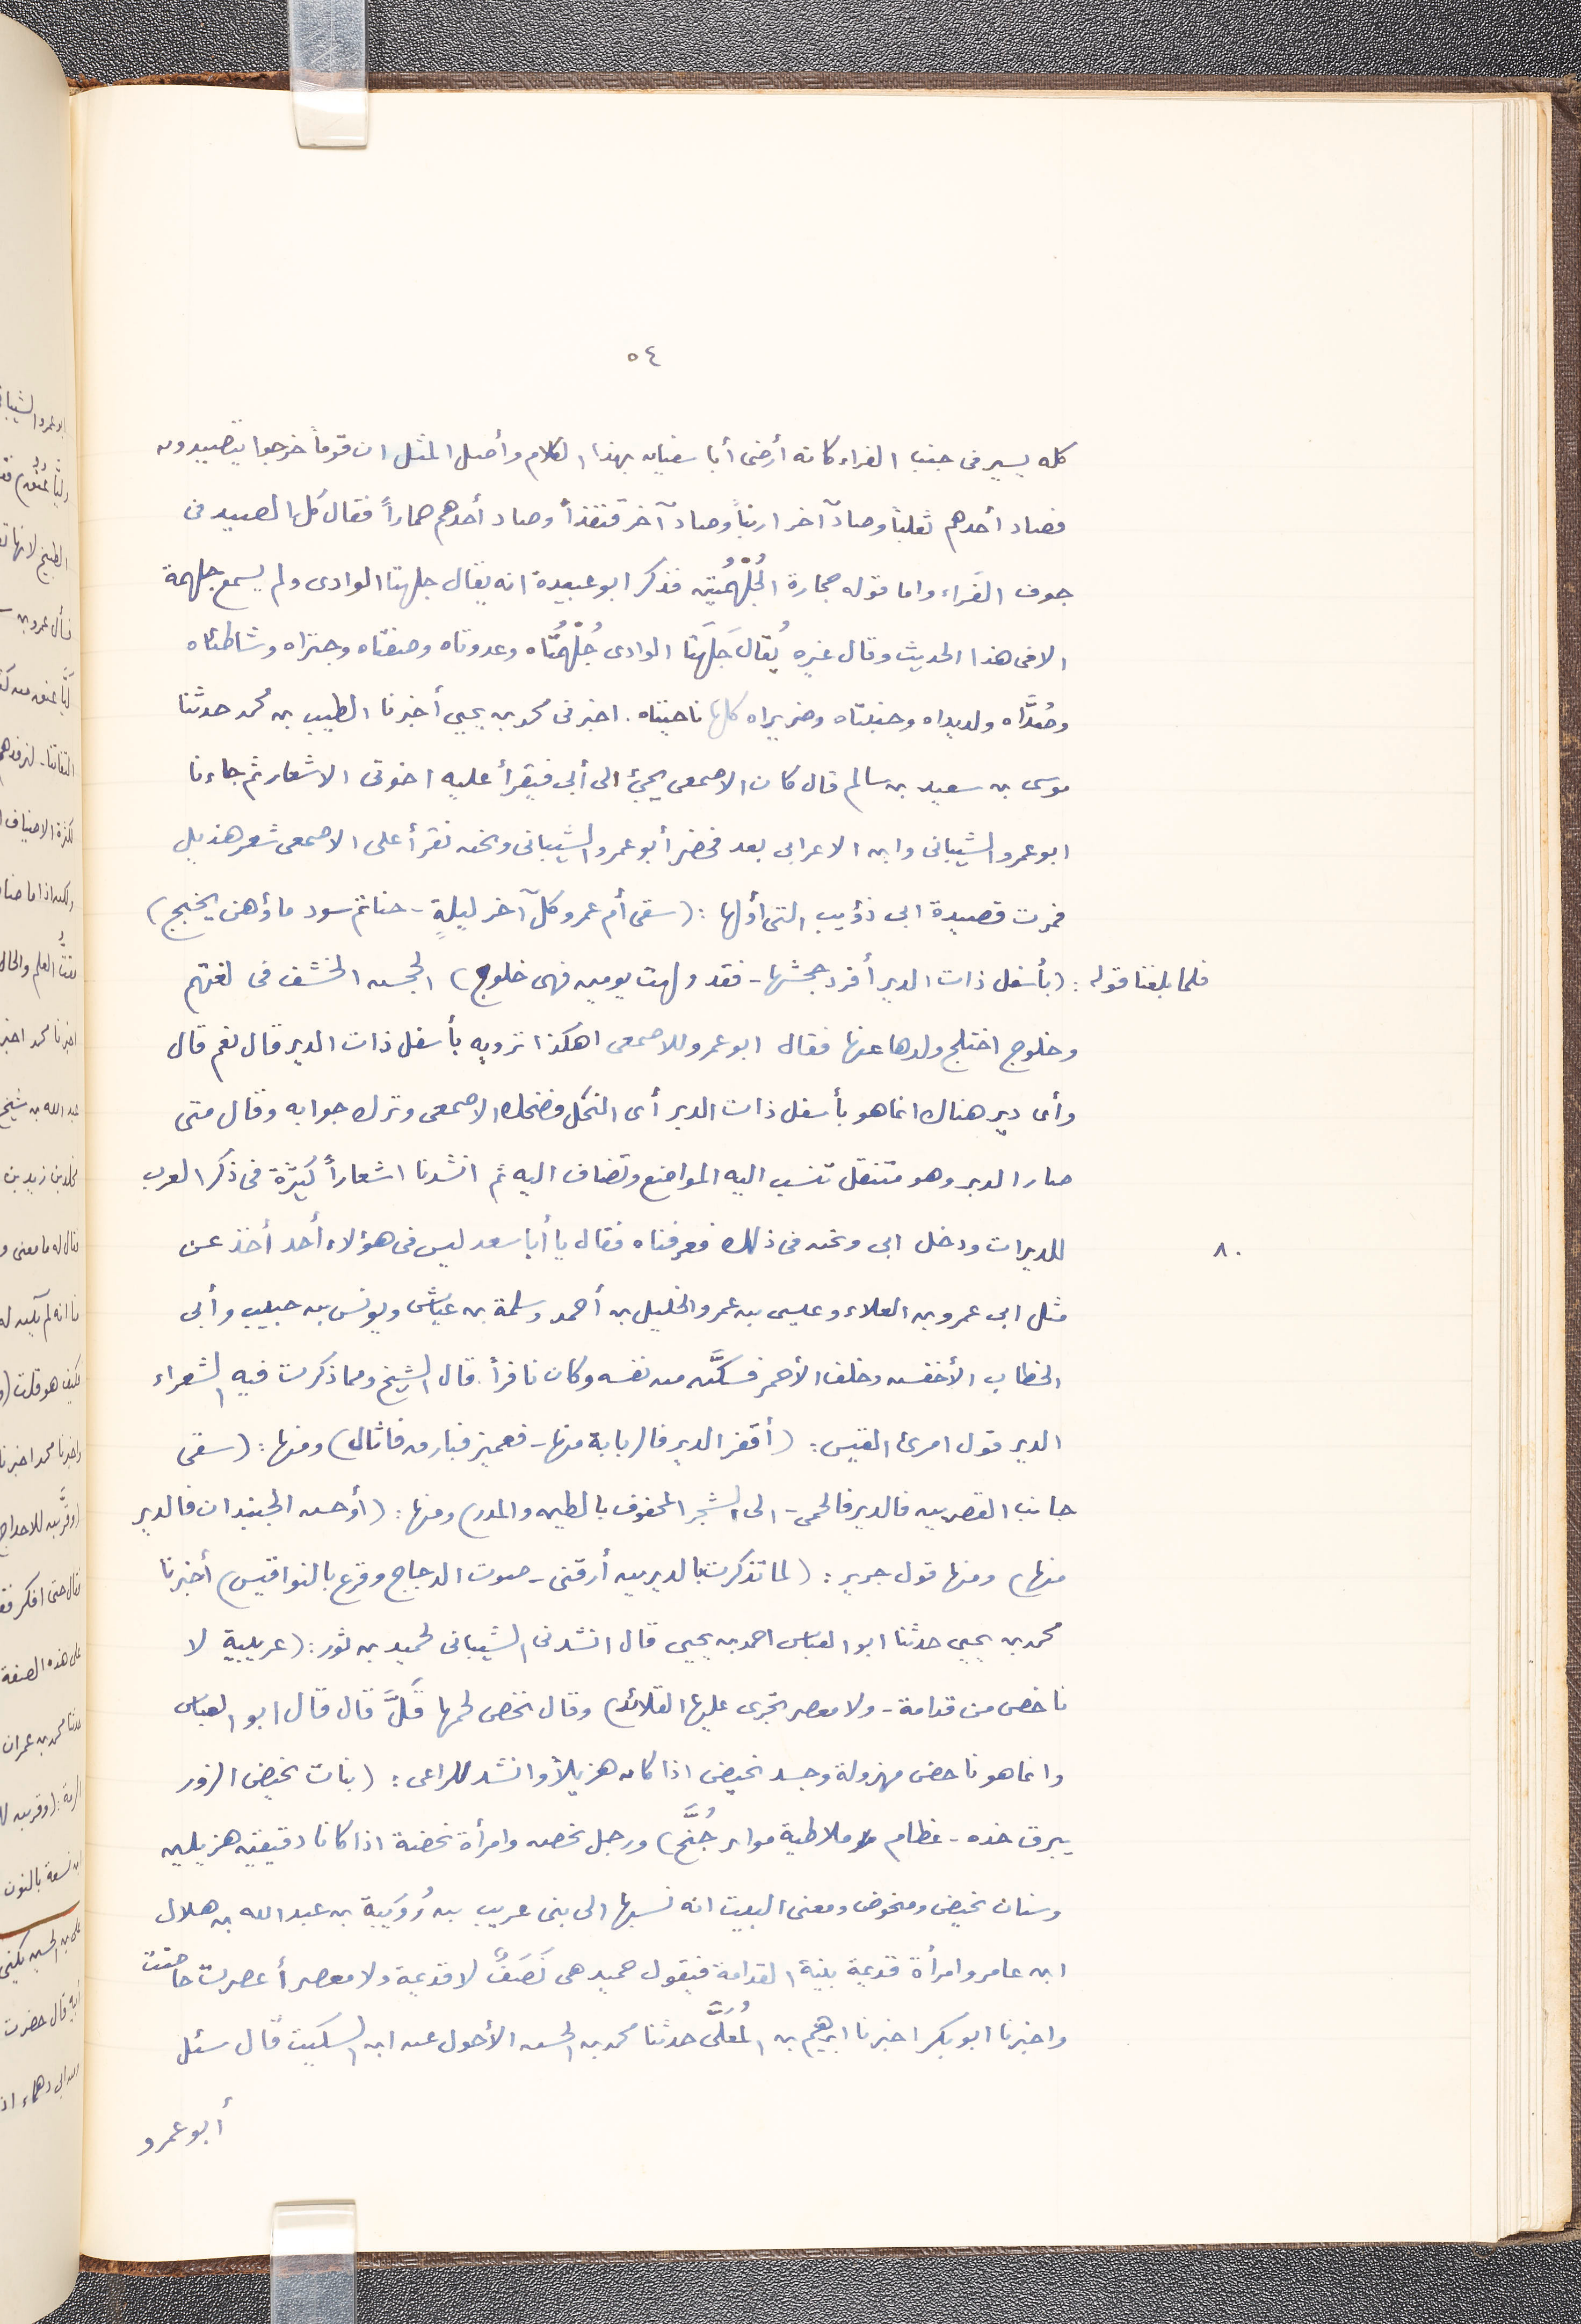 ٥٤
كله يسير فى جنب الفراء كانه أرضى أبا سفيان بهذا الكلام وأصل المثل ان قوماً خرجوا يتصيدون
فصاد أحدهم ثعلباً وصاد آخر ارنباً وصاد آخر قنفذاً وصاد أحدهم حماراً فقال كل الصيد فى
جوف الفَراء واما قوله حجارة الجُلْهُمُتين فذكر ابو عبيدة انه يقال جلهتا الوادى ولم يسمع جلهمة
الا فى هذا الحديث وقال غيره يُقال جَلَهَتا الوادى جُلْهُمُتاه وعدوتاه وضفتاه وجيزاه وشاطئاه
وصُدَّاه ولديداه وجنبتاه وضريراه كلها ناحيتاه. اخبرنى محمد بن يحيى أخبرنا الطيب بن محمد حدثنا
موسى بن سعيد بن سالم قال كان الاصمعى يجئ الى أبى فيقرأ عليه اخوتى الاشعار ثم جاءنا
ابو عمرو الشيبانى وابن الاعرابى بعد فحضر أبو عمرو الشيبانى ونحن نقرأ على الاصمعى شعر هذيل
فمرت قصيدة ابى ذؤيب التى أولها : (سقى أم عمرو كل آخر ليلةٍ - حناتم سود ماؤهن يحجج)
فلما بلغنا قوله : (بأسفل ذات الدير أفرد جحشها - فقد ولهت يومين فهى خلوج) الجحش الخشف فى لغتهم
وخلوج اختلج ولدها عنها فقال ابو عمرو للاصمعى اهكذا ترويه بأسفل ذات الدير قال نعم قال
وأى دير هناك انما هو بأسفل ذات الدبر أى النحل فضحك الاصمعى وترك جوابه وقال متى
صار الدبر وهو متنقل تنسب اليه المواضع وتضاف اليه ثم انشدنا اشعاراً كثيرة فى ذكر العرب
٨٠ للديرات ودخل ابى ونحن فى ذلك فعرفناه فقال يا أبا سعد ليس فى هؤلاء أحد أخذ عن
مثل ابى عمرو بن العلاء وعيسى بن عمر والخليل بن أحمد وسلمة بن عياش ويونس بن حبيب وأبى
الخطاب الأخفش وخلف الأحمر فسكَّن من نفسه وكان نافراً. قال الشيخ ومما ذكرت فيه الشعراء
الدير قول امرئ القيس : (أقفز الدير فالربابة منها - فعميز فبارق فاثال) ومنها : (سقى
جانب القصرين فالدير فالحمى - الى الشجر المحفوف بالطين والمدر) ومنها : (أوحش الجنبدان فالدير
منها) ومنها قول جرير : (لما تذكرت بالديرين أرقنى - صوت الدجاج وقرع بالنواقيس) أخبرنا
محمد بن يحيى حدثنا ابو العباس احمد بن يحيى قال انشدنى الشيبانى لحميد بن ثور : (عريبية لا
ناخص من قدامة - ولا معصر تجرى عليها القلائد) وقال نخص لحمها قَلَّ قال قال ابو العباس
وانما هو ناحض مهزولة وجسد نحيض اذا كان هزيلاً وانشد للراعى : (بنات نحيض الزور
يبرق خده - عظام ملاطية موائر جُنَّح) ورجل نحض وامرأة نحضة اذا كانا دقيقين هزيلين
وسنان نحيض ومنحوض ومعنى البيت انه نسبها الى بنى عريب بن رُوَيبة بن عبد الله بن هلال
ابن عامر وامرأة قديمة بينة القدامة فيقول حميد هى نَصَفٌ لا قديمة ولا معصر أعصرت حاضت
واخبرنا ابو بكر اخبرنا ابرهيم بن المُعَلَّى حدثنا محمد بن الحسن الأحول عن ابن السكيت قال سئل
أبو عمرو